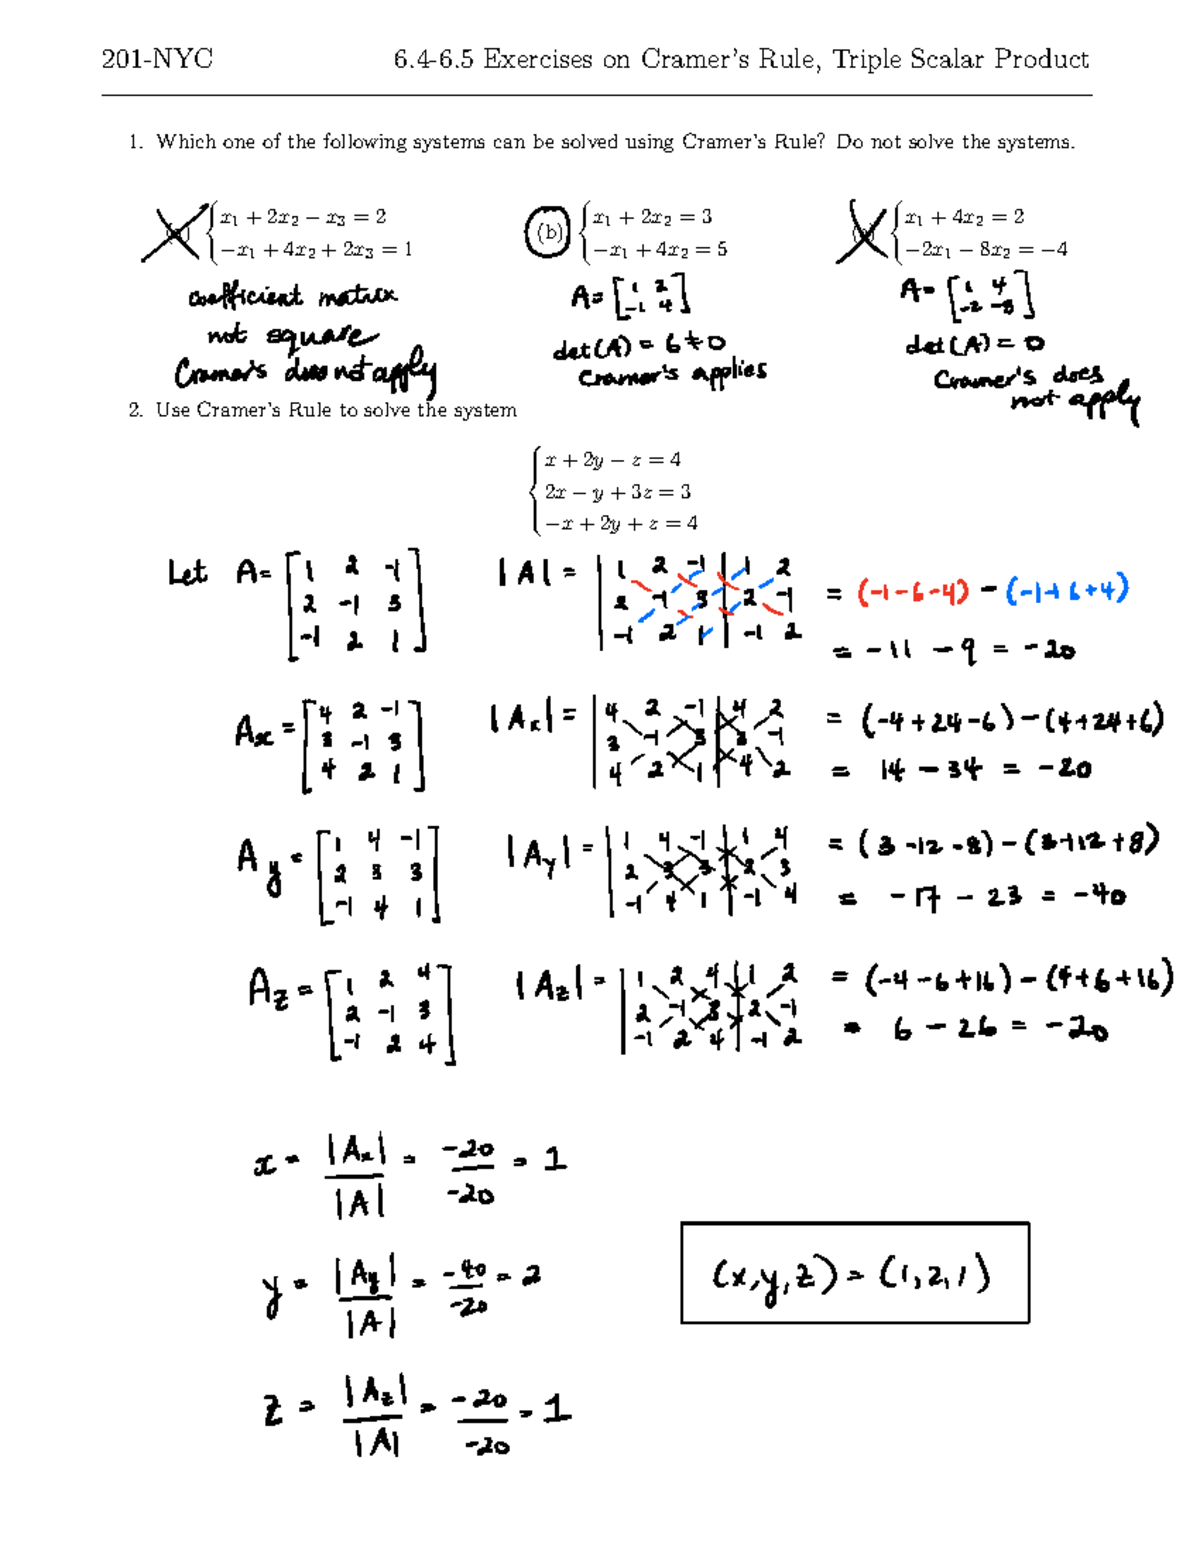 201-NYC 6.4-6.5 Exercises on Cramer's Rule, Triple Scalar Product
1. Which one of the following systems can be solved using Cramer's Rule? Do not solve the systems.
x₁ + 2x₂ − x₃ = 2
−x₁ + 4x₂ + 2x₃ = 1
coefficient matrix
not square
Cramer's does not apply
(b) x₁ + 2x₂ = 3
−x₁ + 4x₂ = 5
A = [1 2
-1 4]
det(A) = 6 ≠ 0
Cramer's applies
x₁ + 4x₂ = 2
−2x₁ − 8x₂ = −4
A = [1 4
-2 -8]
det(A) = 0
Cramer's does
not apply
2. Use Cramer's Rule to solve the system
x + 2y − z = 4
2x − y + 3z = 3
−x + 2y + z = 4
Let A = [1 2 -1
2 -1 3
-1 2 1]
|A| = |1 2 -1| 1 2
2 -1 3| 2 -1
-1 2 1| -1 2
= (-1-6-4) - (-1+6+4)
= -11 - 9 = -20
Ax = [4 2 -1
3 -1 3
4 2 1]
|Ax| = |4 2 -1| 4 2
3 -1 3| 3 -1
4 2 1| 4 2
= (-4+24-6) - (4+24+6)
= 14 - 34 = -20
Ay = [1 4 -1
2 3 3
-1 4 1]
|Ay| = |1 4 -1| 1 4
2 3 3| 2 3
-1 4 1| -1 4
= (3-12-8) - (3+12+8)
= -17 - 23 = -40
Az = [1 2 4
2 -1 3
-1 2 4]
|Az| = |1 2 4| 1 2
2 -1 3| 2 -1
-1 2 4| -1 2
= (-4-6+16) - (4+6+16)
= 6 - 26 = -20
x = |Ax| / |A| = -20 / -20 = 1
y = |Ay| / |A| = -40 / -20 = 2
(x,y,z) = (1,2,1)
z = |Az| / |A| = -20 / -20 = 1